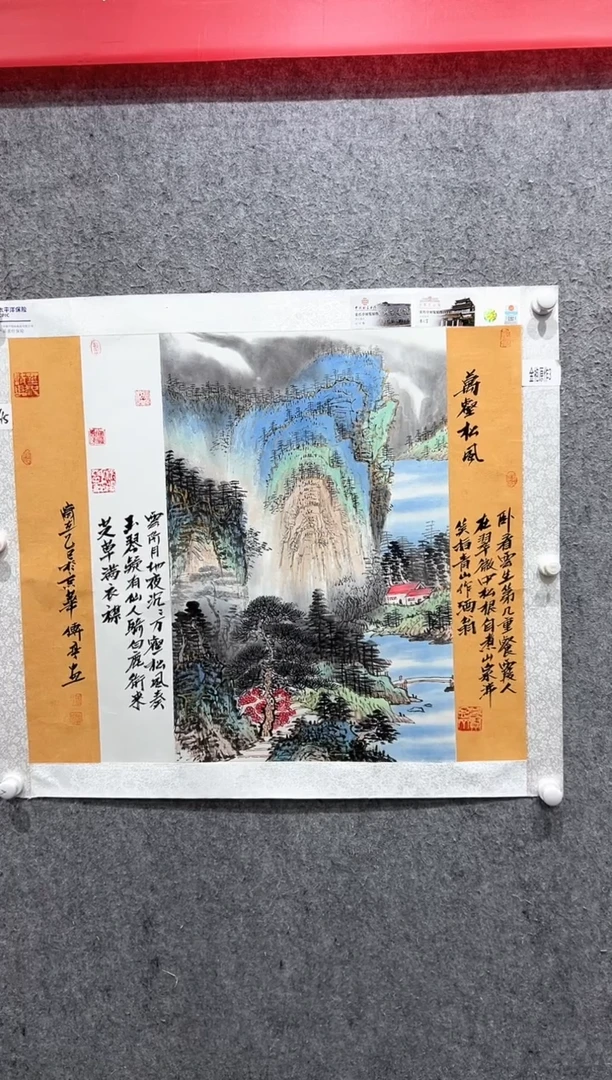 太平洋保险
萬壑松風
臥看雲生第几重餐霞人
在翠微中松根自煮山泉沸
笑指青山作酒翁
雲階月地夜沉沉万壑松風奏
玉琴疑有仙人騎白鹿銜来
芝草满衣襟
歲在乙巳於京華